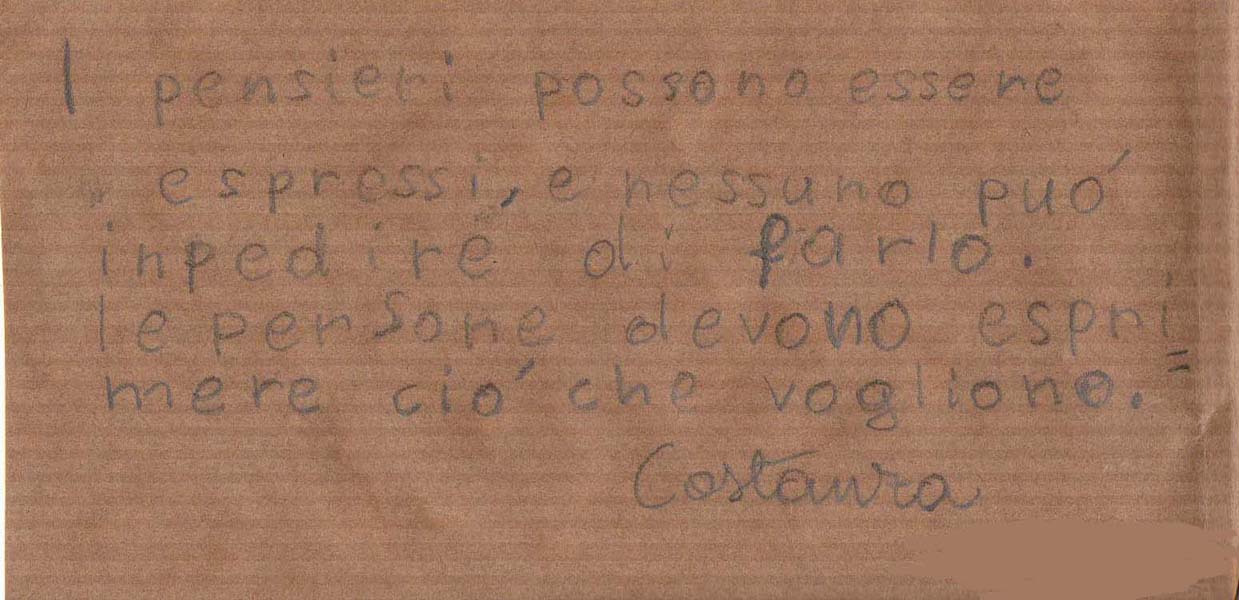 I pensieri possono essere
espressi, e nessuno puó
inpedire di farlo.
le persone devono espri=
mere ció che vogliono.
Costanza